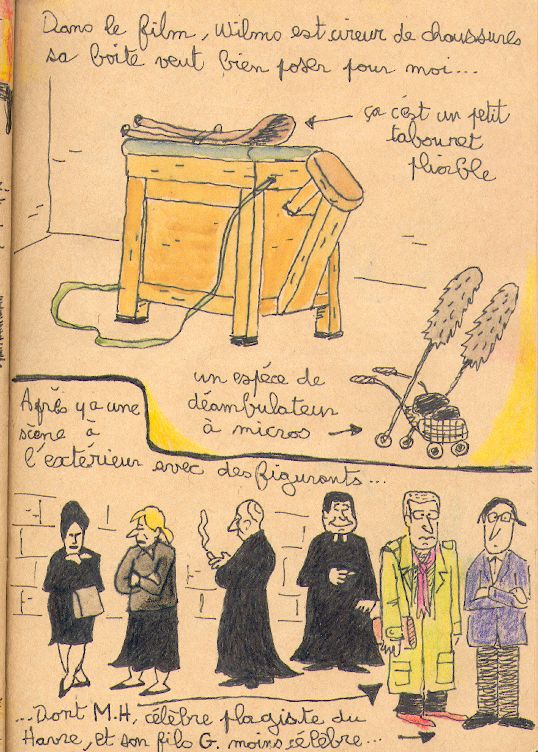 Dans le film, Wilmo est cireur de chaussures
sa boîte veut bien poser pour moi...
ça c'est un petit
tabouret
pliable
un espéce de
déambulateur
à micros
Après y a une
scène à
l'extérieur avec des figurants...
...Dont M.H, célèbre plagiste du
Havre, et son fils G. moins célèbre...